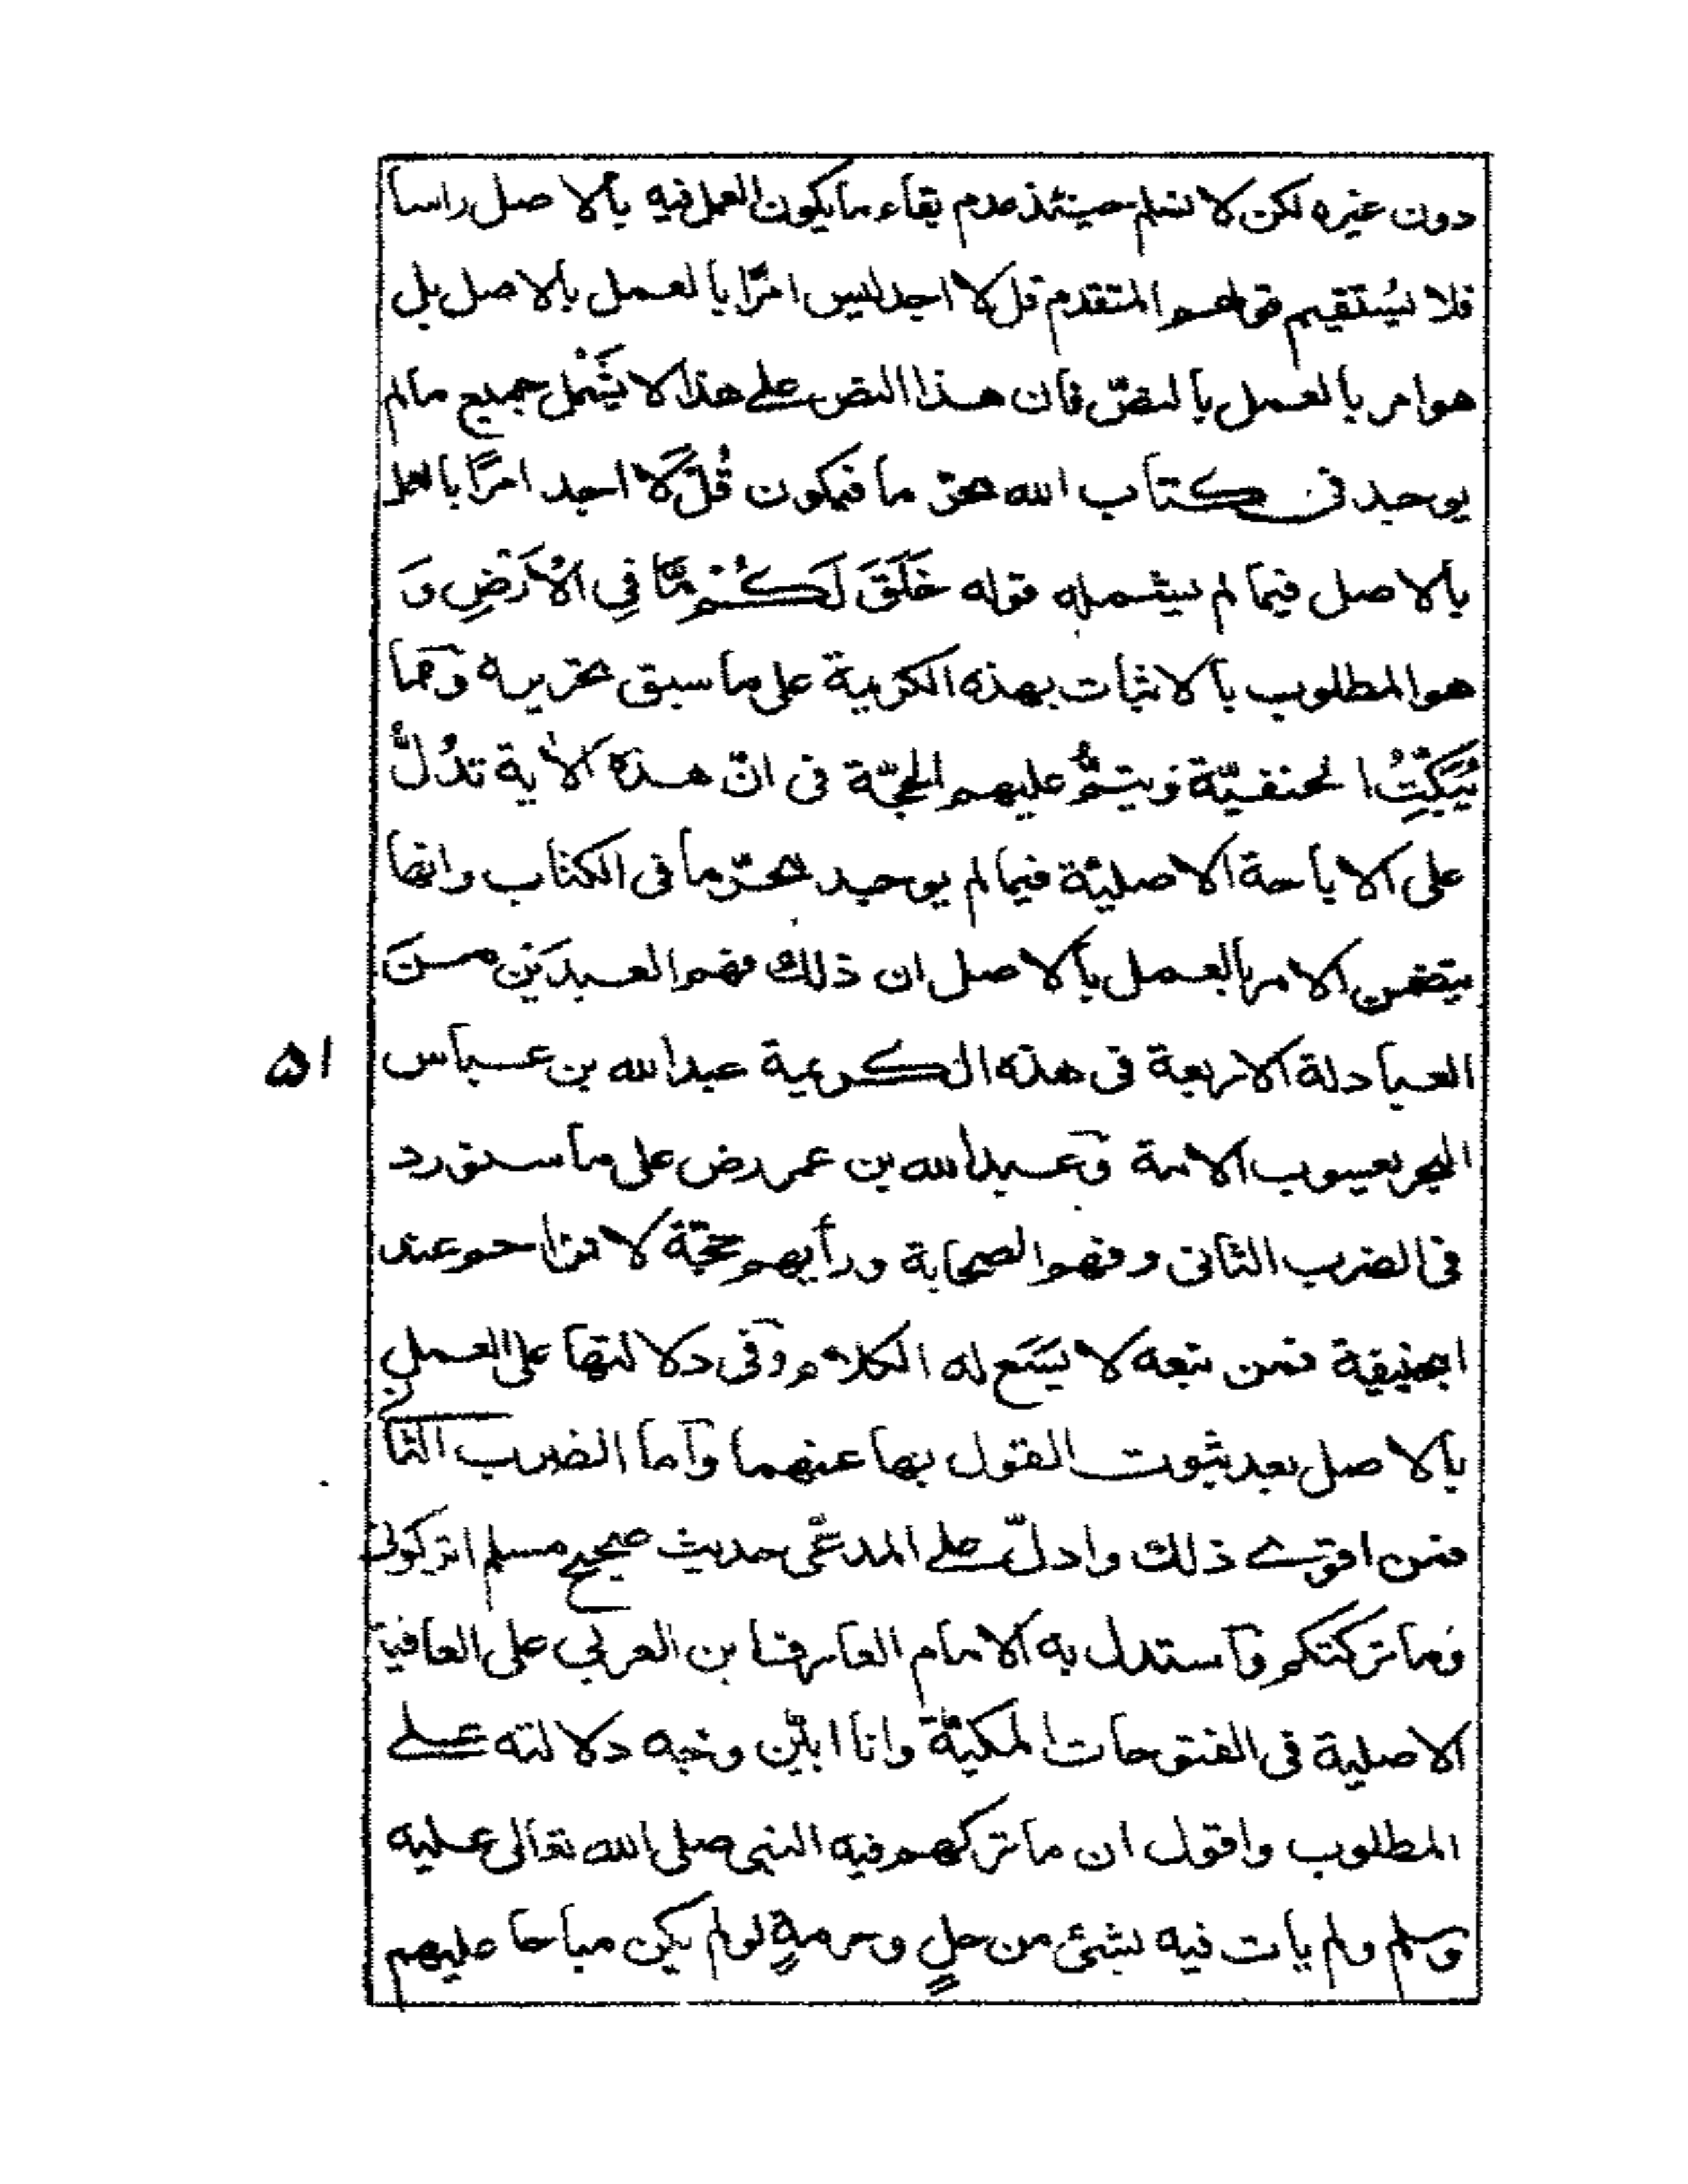 دون غيره لكن لا نسلم حينئذ عدم بقاء ما يكون العمل فيه بالاصل راسا
فلا يُستقيم قولهم المتقدم قل لا اجد ليس امرًا بالعمل بالاصل بل
هو امر بالعمل بالنصّ فان هذا النص على هذا لا يَشْمل جميع ما لم
يوجد فى كتاب الله محرّما فيكون قُل لَّا اجد امرًا بالعمل
بالاصل فيما لم يشمله قوله خَلَقَ لَكُمْ مَّا فِي الْاَرْضِ وَ
هو المطلوب بالاثبات بهذه الكريمة على ما سبق تحريره وَمما
يُبَكِّتُ الحنفيّة وَيتمُّ عليهم الحجّة فى انّ هذه الاٰية تدُلُّ
على الاباحة الاصليّة فيما لم يوجد محرّما فى الكتاب وانها
يتضمن الامر بالعمل بالاصل ان ذلك فهم العبدَين مِن
العبادلة الاربعة فى هذه الكريمة عبد الله بن عباس
البحر يعسوب الامة وَعبد الله بن عمر رض على ما سنورد
۵۱
فى الضرب الثانى وفهم الصحابة ورأيهم حجّة لا تزاحم عند
ابيحنيفة فمن تبعه لا يَسَع له الكلام وَفى دلالتها على العمل
بالاصل بعد ثبوت القول بها عنهما وَاما الضرب الثانى
فمن اقوى ذلك وادلّ على المدعٰى حديث صحيح مسلم اتركونى
وَما تركتكم وَاستدل به الامام العارف ابن العربي على العافية
الاصلية فى الفتوحات المكيّة وانا ابيّن وجه دلالته على
المطلوب واقول ان ما تركهم فيه النبى صلى الله تعالى عليه
وسلم ولم يات فيه بشئ من حلٍ وحرمةٍ لو لم يكن مباحا عليهم